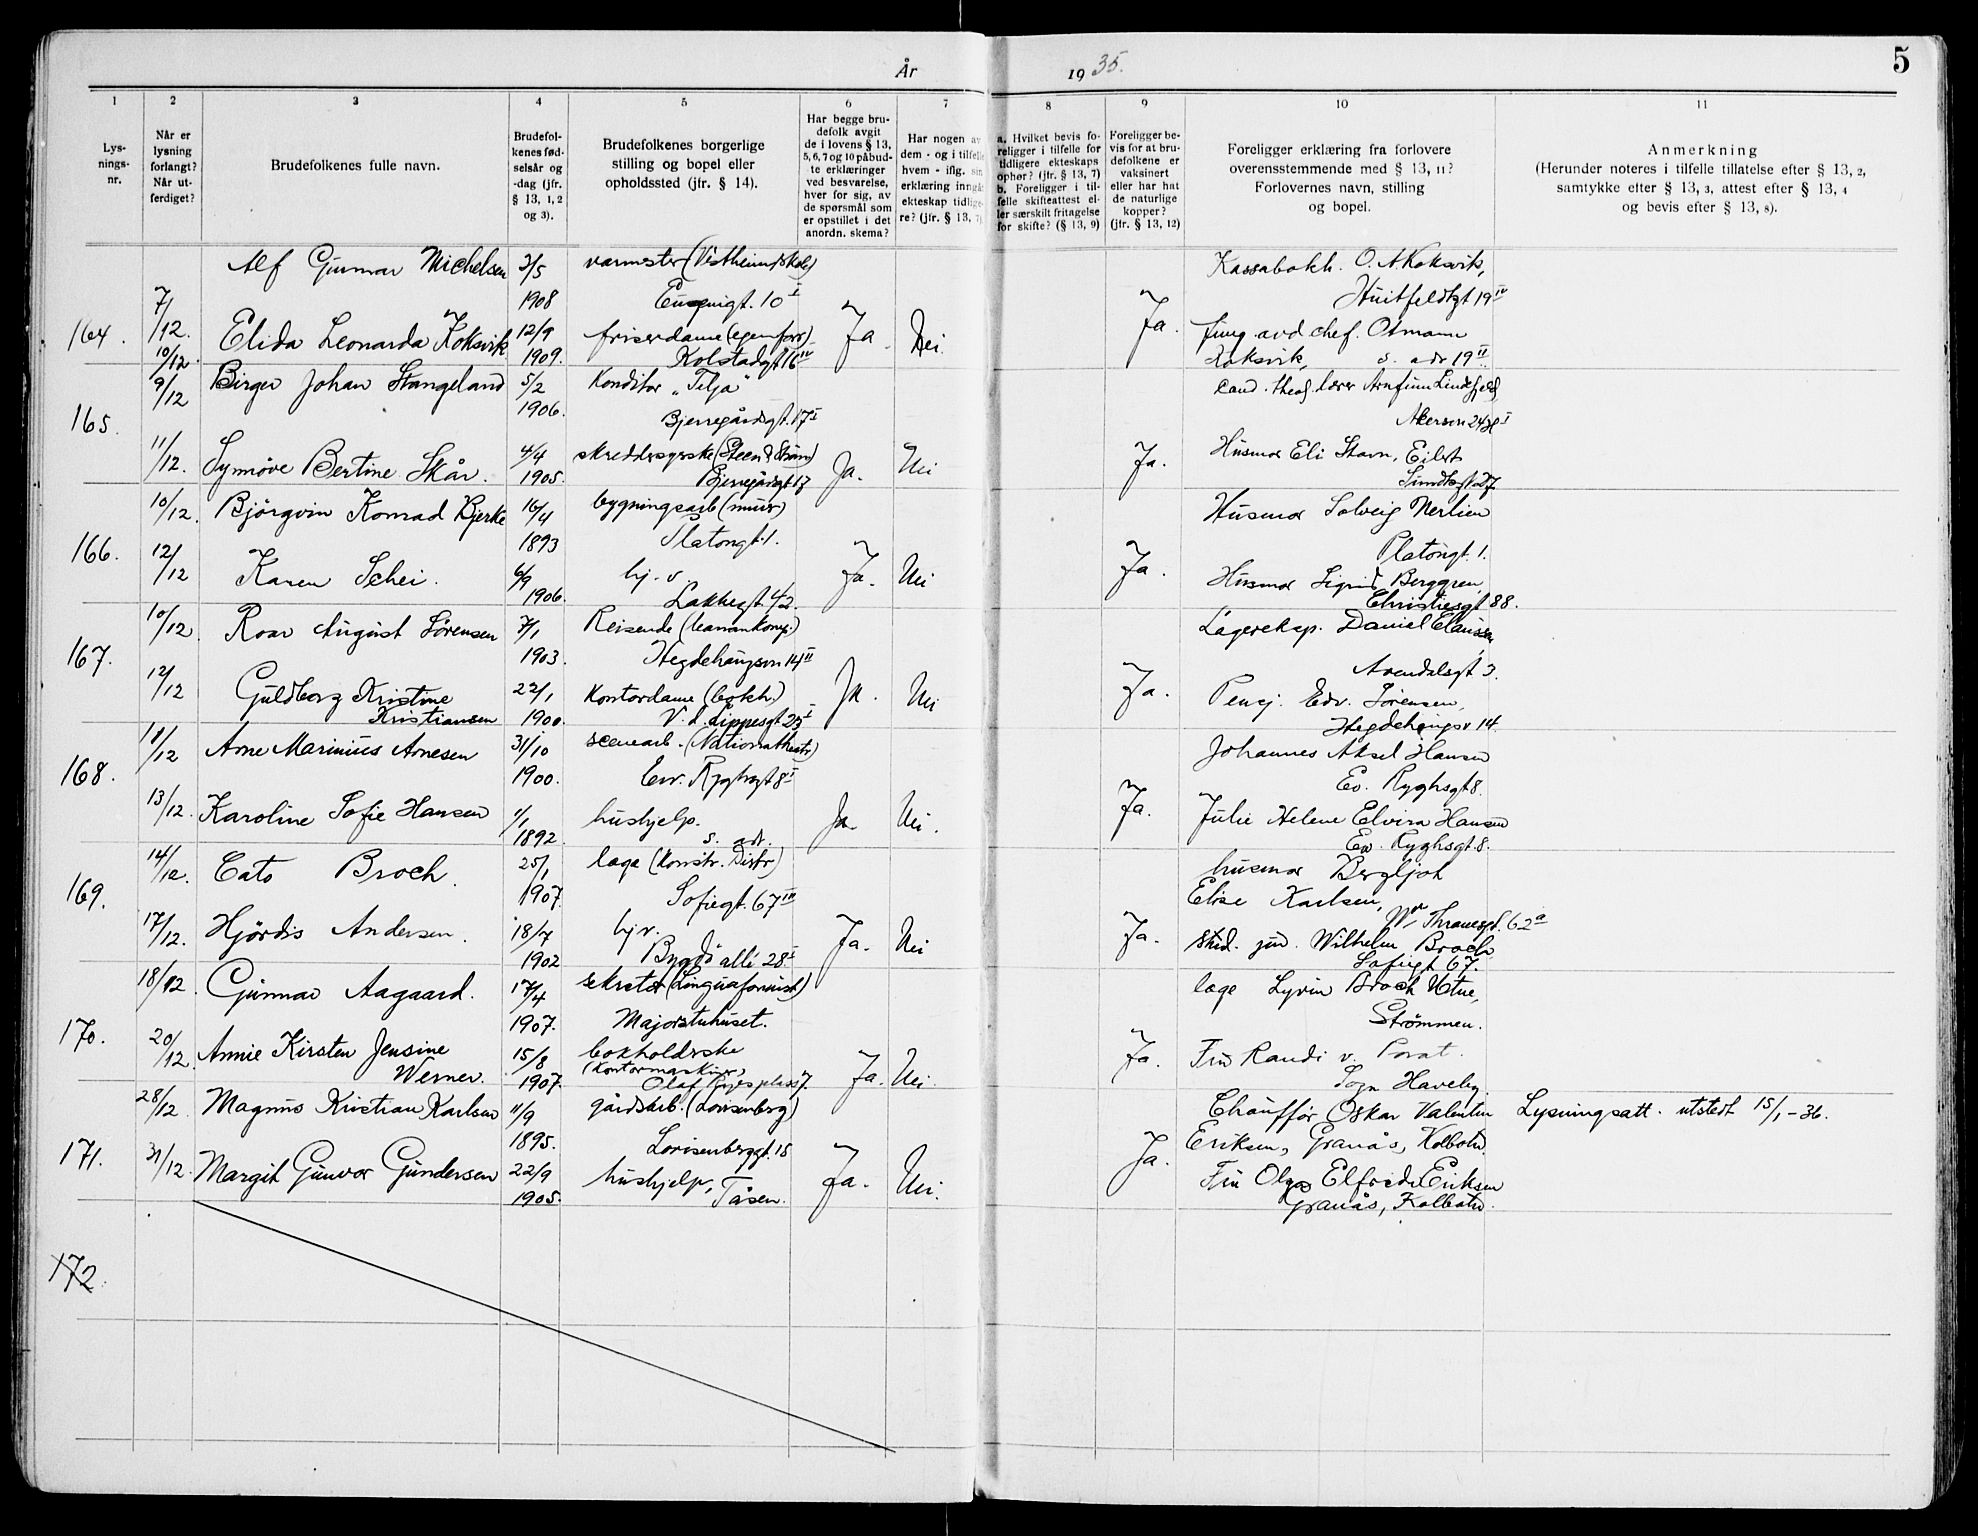 År 1935.
5
1 2 3 4 5 6 7 8 9 10 11
Lys-
nings-
nr.
Når er
lysning
forlangt?
Når ut-
ferdiget?
Brudefolkenes fulle navn.
Brudefol-
kenes fød-
selsår og
-dag (jfr.
§ 13, 1, 2
og 3).
Brudefolkenes borgerlige
stilling og bopel eller
opholdssted (jfr. § 14).
Har begge bru-
defolk avgit
de i lovens § 13,
5, 6, 7 og 10 påbud-
te erklæringer
ved besvarelse,
hver for sig, av
de spørsmål som
er opstillet i det
anordn. skema?
Har nogen av
dem - og i tilfelle
hvem - iflg. sin
erklæring inngå
ekteskap tidlige-
re? (jfr. § 13, 7)
a. Hvilket bevis fo-
religger i tilfelle for
tidligere ekteskaps
ophør? (jfr. § 13, 7)
b. Foreligger i til-
felle skifteattest el-
ler særskilt fritagelse
for skifte? (§ 13, 9)
Foreligger be-
vis for at bru-
defolkene er
vaksinert
eller har hat
de naturlige
kopper?
(jfr. § 13, 12)
Foreligger erklæring fra forlovere
overensstemmende med § 13, 11?
Forlovernes navn, stilling
og bopel.
Anmerkning
(Herunder noteres i tilfelle tillatelse efter § 13, 2,
samtykke efter § 13, 3, attest efter § 13, 4
og bevis efter § 13, 8).
164.
7/12.
10/12.
Alf Gunnar Michelsen
3/5
1908
varmester (Vestheim skole)
Eugenigt. 10 I
Elida Leonarda Koksvik
12/9
1909.
friserdame (egen forr.)
Kolstadgt 16 IV
Ja.
Nei
Ja.
Kassabokh. O. A. Koksvik,
Huitfeldtgt 19 IV
avd chef. Otmann
Koksvik, s. adr 19 II
165.
9/12
11/12.
Birger Johan Stangeland
5/2
1906.
Konditor "Telja"
Bjerregårdsgt. 17 I
Synnöve Bertine Skår.
4/4
1905.
skreddersyerske (Steen & Ström)
Bjerregårdsgt 17
Ja.
Nei
Ja.
cand. theol. lærer Arnfinn Lindefjeld,
Akersvn 24 I
Husmor Eli Stavn, Eilert
Sundtsgt
166.
10/12.
12/12
Björgvin Konrad Bjerke
16/4
1893
bygningsarb (mur)
Platongt. 1.
Karen Schei.
6/9
1906.
hj. v.
Lakkegt 42.
Ja.
Nei
Ja.
Husmor Solveig Nerlien
Platongt. 1.
Husmor Sigrid Berggren,
Christiesgt 88.
167.
10/12.
12/12
Roar August Sörensen
7/1
1903.
Reisende
Hegdehaugsvn 14 II
Guldborg Kristine
Kristiansen
22/1
1900.
Kontordame (bokh.)
V. d. Lippesgt 25 I
Ja.
Nei
Ja.
Lagereksp. Daniel Clausen
Arendalsgt 3.
Pensj. Edv. Sörensen,
Hegdehaugsv 14.
168.
11/12
13/12.
Arne Marinius Arnesen
31/10
1900.
scenearb. (Nationaltheatr)
Ew. Ryghsgt 8 I
Karoline Sofie Hansen
1/1
1892.
hushjelp.
s. adr.
Ja.
Nei.
Ja.
Johannes Aksel Hansen
Ev. Ryghsgt 8.
Julie Helene Elvira Hansen
Ew. Ryghsgt. 8.
169.
14/12.
17/12.
Cato Broch.
25/1
1907.
lage (Konstr. Distr)
Sofiegt. 67 IV
Hjördis Andersen.
18/7
1902
hj v.
Bygdö allé 28 I
Ja.
Nei
Ja.
husmor Bergljot
Elise Karlsen,
Thranesgt. 62 a
stud. jur. Wilhelm Broch
Sofiegt 67.
170.
18/12
20/12.
Gunnar Aagaard.
17/4
1907.
sekretær (Linguafoninst)
Majorstuhuset.
Annie Kirsten Jensine
Werner.
15/8
1907.
bokholderske
(Kontormaskiner)
Olaf Ryes plass 7.
Ja.
Nei.
Ja.
lage Broch Utne,
Strömmen.
Fru Randi v. Porat.
Sogn Haveby
171.
28/12.
31/12.
Magnus Kristian Karlsen
11/9
1895.
gårdsarb. (Lovisenberg)
Lovisenberggt. 15
Margit Gunvor Gundersen
22/9
1905.
hushjelp, Tåsen.
Ja.
Nei.
Ja.
Chaufför Oskar Valentin
Eriksen, Granås, Kolbotn
Fru Olga Elfrida Eriksen
Granås, Kolbotn.
Lysningsatt. utstedt 15/1-36.
172.